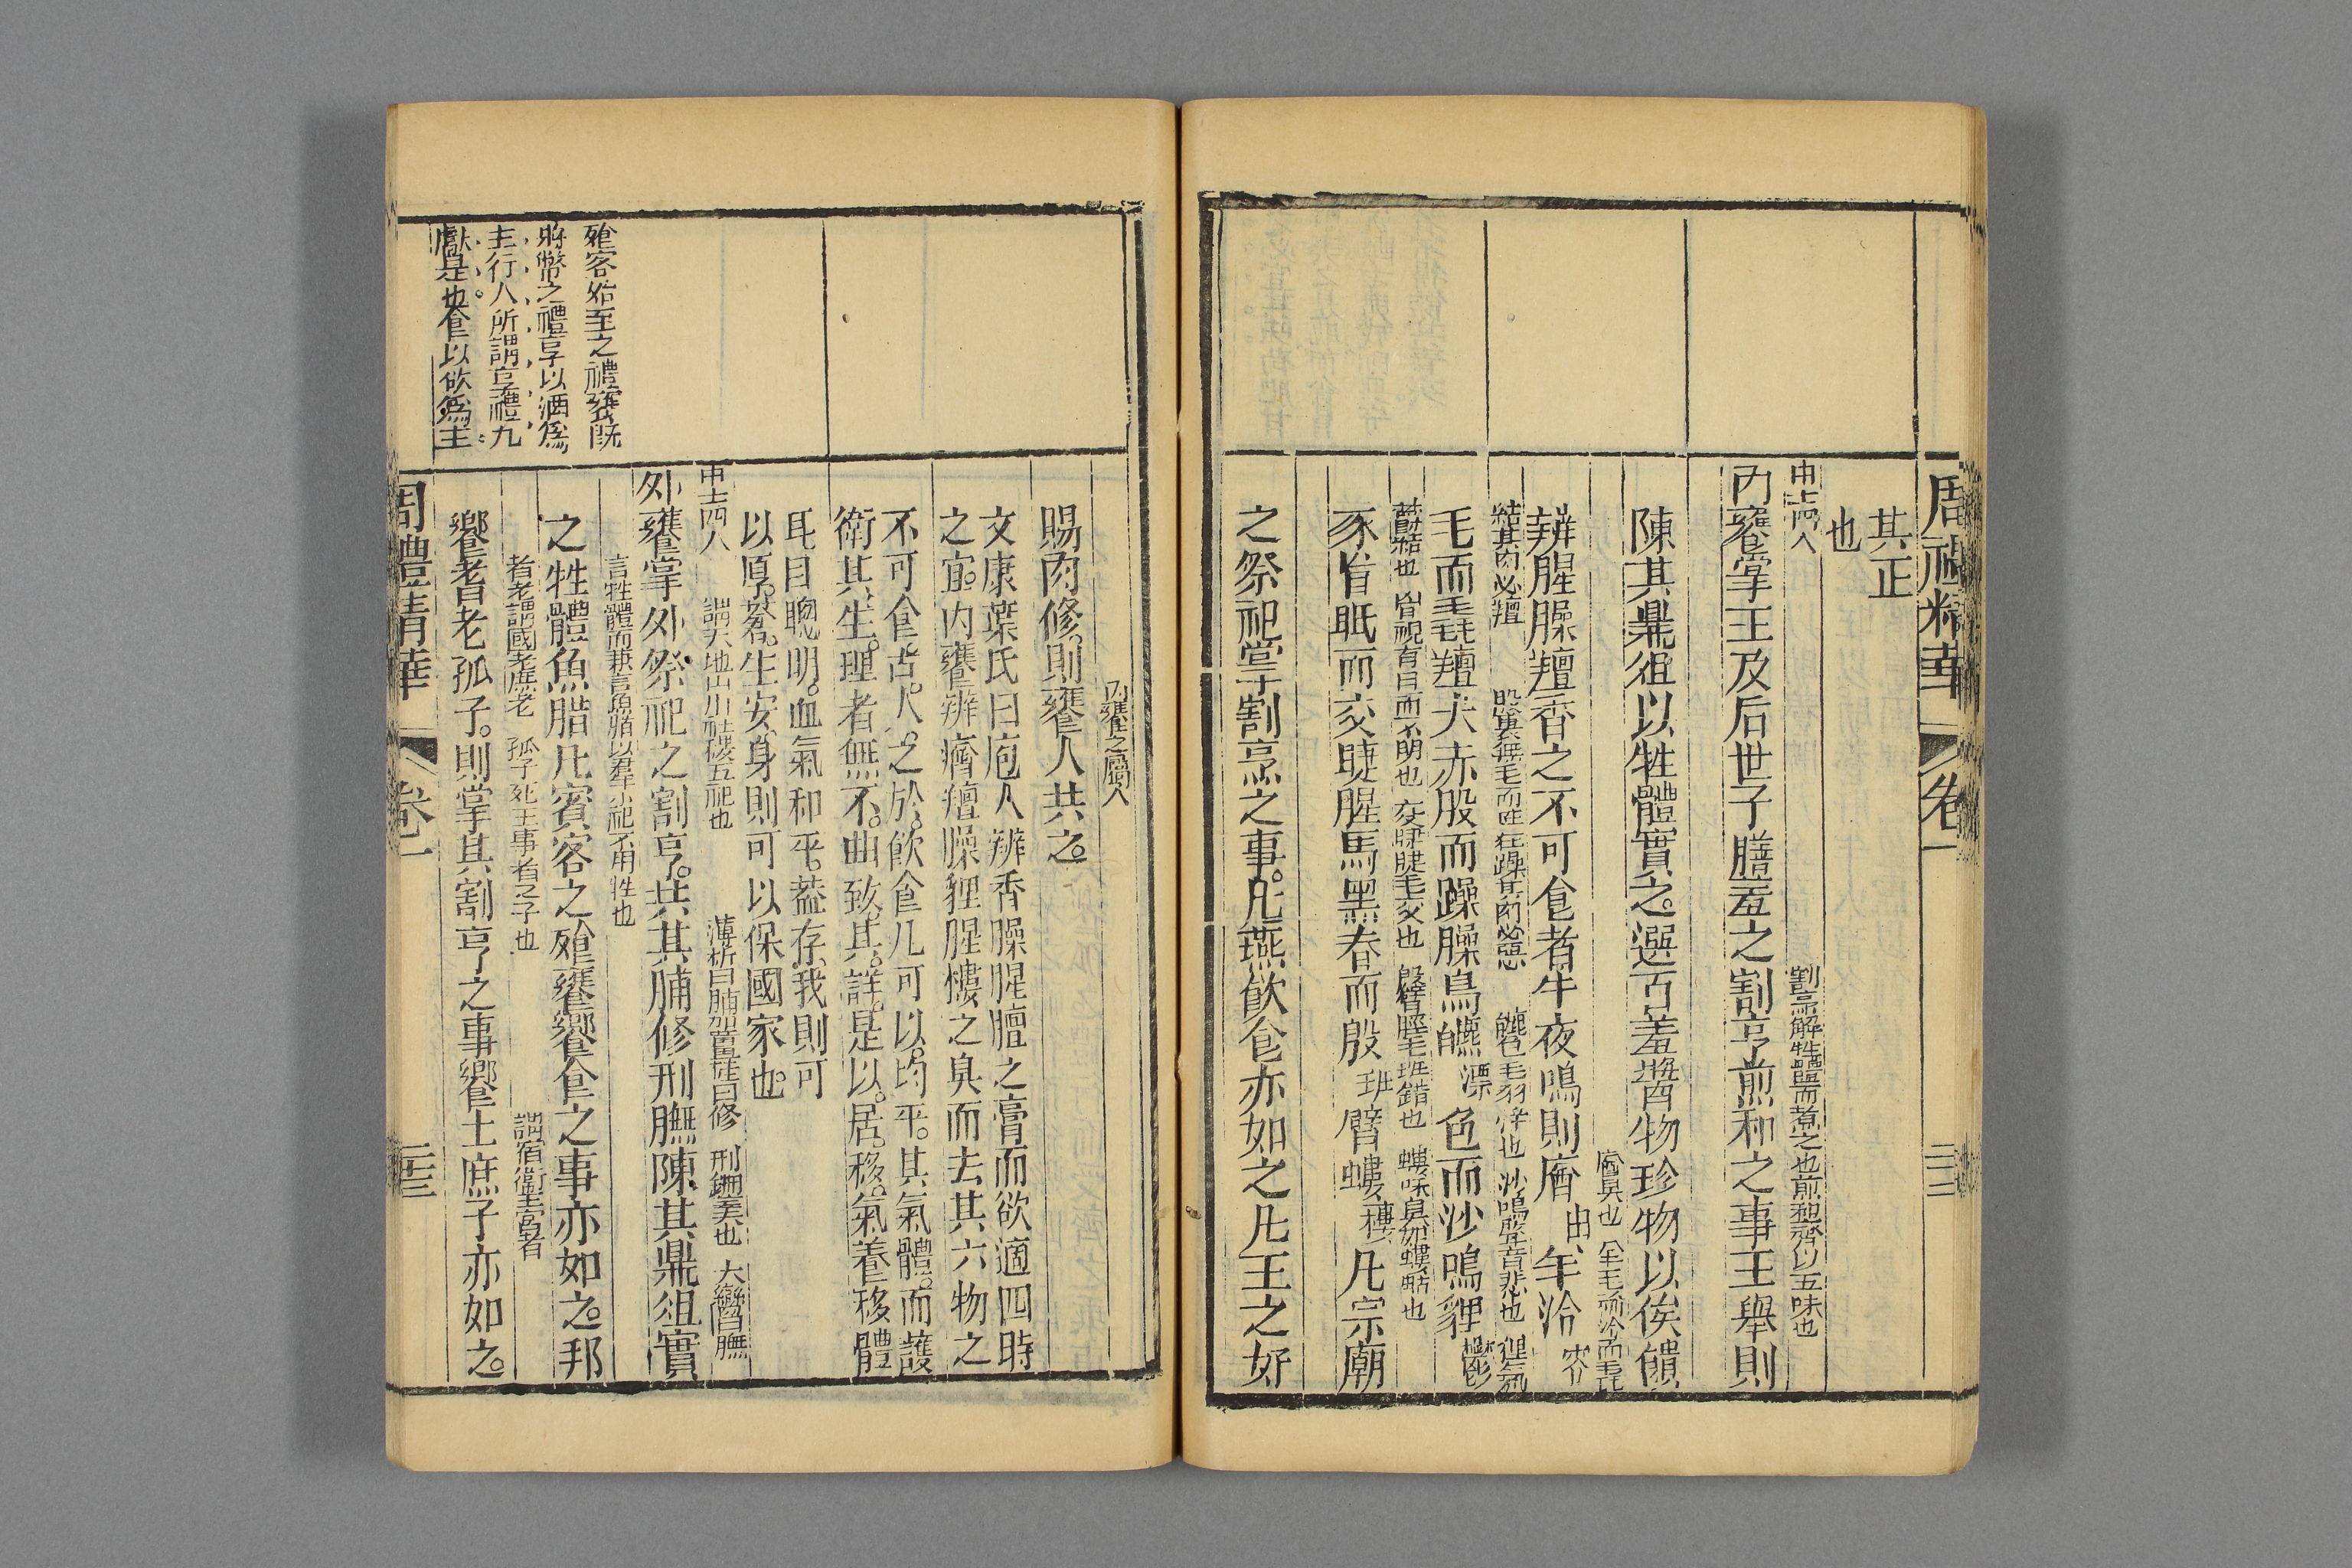 周禮精華 卷一
其正
也
中士四人 割烹解牲體而煮之也煎和齊以五味也
內饔掌王及后世子膳羞之割亨煎和之事王舉則
陳其鼎俎以牲體實之選百羞醬物珍物以俟饋
辨腥臊羶香之不可食者牛夜鳴則庮由羊泠
結其肉必羶 股裏無毛而走狂躁其肉必惡
毛而毳羶犬赤股而躁臊鳥皫漂色而沙鳴貍鬱
豕盲眡而交睫腥馬黑脊而般班臂螻樓凡宗廟
之祭祀掌割烹之事凡燕飲食亦如之凡王之好
內饔之屬人
賜肉修則饔人共之
文康葉氏曰庖人辨香臊腥膻之膏而欲適四時
之宜內饔辨庮羶臊貍腥螻之臭而去其六物之
不可食古人之於飲食凡可以均平其氣體而護
衛其生理者無不曲致其詳是以居移氣養移體
耳目聰明血氣和平蓋存我則可
以厚蒼生安身則可以保國家也
中士四人 謂天地山川社稷五祀也 薄析曰脯加薑桂曰修 刑鉶羹也 大臠曰膴
外饔掌外祭祀之割亨共其脯修刑膴陳其鼎俎實
言牲體而兼言魚腊以羣小祀不用牲也
之牲體魚腊凡賓客之飧饔饗食之事亦如之邦
耆老謂國老庶老 孤子死王事者之子也 謂宿衛王宮者
饗耆老孤子則掌其割亨之事饗士庶子亦如之
飧客始至之禮饔既
將幣之禮享以酒為
主行人所謂享禮九
獻是也食以飲為主
周禮精華 卷一 二十三